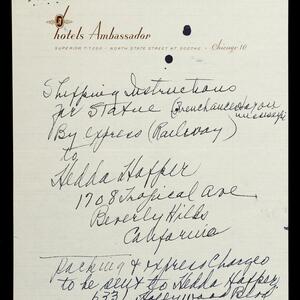 hotels Ambassador
SUPERIOR 7-7200 · NORTH STATE STREET AT GOETHE · Chicago 10
Shipping Instructions
for Statue
By Express (Railway)
to
Hedda Hopper
1708 Tropical Ave
Beverly Hills
California
Packing & express charges
to be sent to Hedda Hopper
Hollywood Blvd